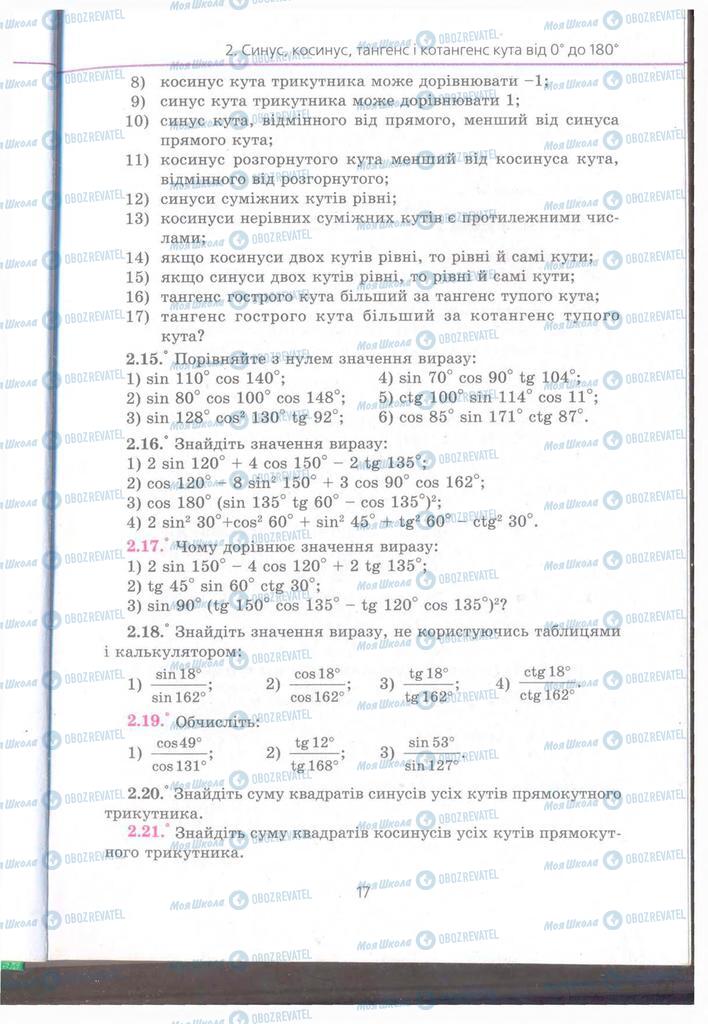 2. Синус, косинус, тангенс і котангенс кута від 0° до 180°
8) косинус кута трикутника може дорівнювати −1;
9) синус кута трикутника може дорівнювати 1;
10) синус кута, відмінного від прямого, менший від синуса
прямого кута;
11) косинус розгорнутого кута менший від косинуса кута,
відмінного від розгорнутого;
12) синуси суміжних кутів рівні;
13) косинуси нерівних суміжних кутів є протилежними чис-
лами;
14) якщо косинуси двох кутів рівні, то рівні й самі кути;
15) якщо синуси двох кутів рівні, то рівні й самі кути;
16) тангенс гострого кута більший за тангенс тупого кута;
17) тангенс гострого кута більший за котангенс тупого
кута?
2.15.° Порівняйте з нулем значення виразу:
1) sin 110° cos 140°; 4) sin 70° cos 90° tg 104°;
2) sin 80° cos 100° cos 148°; 5) ctg 100° sin 114° cos 11°;
3) sin 128° cos² 130° tg 92°; 6) cos 85° sin 171° ctg 87°.
2.16.° Знайдіть значення виразу:
1) 2 sin 120° + 4 cos 150° − 2 tg 135°;
2) cos 120° − 8 sin² 150° + 3 cos 90° cos 162°;
3) cos 180° (sin 135° tg 60° − cos 135°)²;
4) 2 sin² 30°+cos² 60° + sin² 45° + tg² 60° − ctg² 30°.
2.17.° Чому дорівнює значення виразу:
1) 2 sin 150° − 4 cos 120° + 2 tg 135°;
2) tg 45° sin 60° ctg 30°;
3) sin 90° (tg 150° cos 135° − tg 120° cos 135°)²?
2.18.° Знайдіть значення виразу, не користуючись таблицями
і калькулятором:
1) sin 18°/sin 162°; 2) cos 18°/cos 162°; 3) tg 18°/tg 162°; 4) ctg 18°/ctg 162°.
2.19.° Обчисліть:
1) cos 49°/cos 131°; 2) tg 12°/tg 168°; 3) sin 53°/sin 127°.
2.20.° Знайдіть суму квадратів синусів усіх кутів прямокутного
трикутника.
2.21.° Знайдіть суму квадратів косинусів усіх кутів прямокут-
ного трикутника.
17
Моя Школа OBOZREVATEL